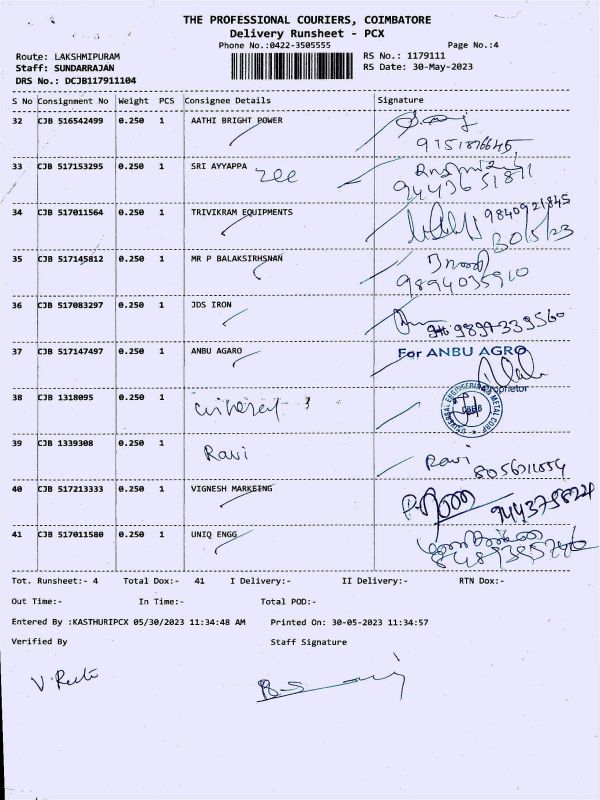 THE PROFESSIONAL COURIERS, COIMBATORE
Delivery Runsheet - PCX
Phone No.:0422-3505555 Page No.:4
Route: LAKSHMIPURAM RS No.: 1179111
Staff: SUNDARRAJAN RS Date: 30-May-2023
DRS No.: DCJB117911104
S No Consignment No Weight PCS Consignee Details Signature
32 CJB 516542499 0.250 1 AATHI BRIGHT POWER
33 CJB 517153295 0.250 1 SRI AYYAPPA
34 CJB 517011564 0.250 1 TRIVIKRAM EQUIPMENTS 9840921845
30/5/23
35 CJB 517145812 0.250 1 MR P BALAKSIRHSNAN
9894035910
36 CJB 517083297 0.250 1 JDS IRON
37 CJB 517147497 0.250 1 ANBU AGARO For ANBU AGRO
Proprietor
38 CJB 1318095 0.250 1
39 CJB 1339308 0.250 1 Ravi Ravi
40 CJB 517213333 0.250 1 VIGNESH MARKEING
41 CJB 517011580 0.250 1 UNIQ ENGG
Tot. Runsheet:- 4 Total Dox:- 41 I Delivery:- II Delivery:- RTN Dox:-
Out Time:- In Time:- Total POD:-
Entered By :KASTHURIPCX 05/30/2023 11:34:48 AM Printed On: 30-05-2023 11:34:57
Verified By Staff Signature